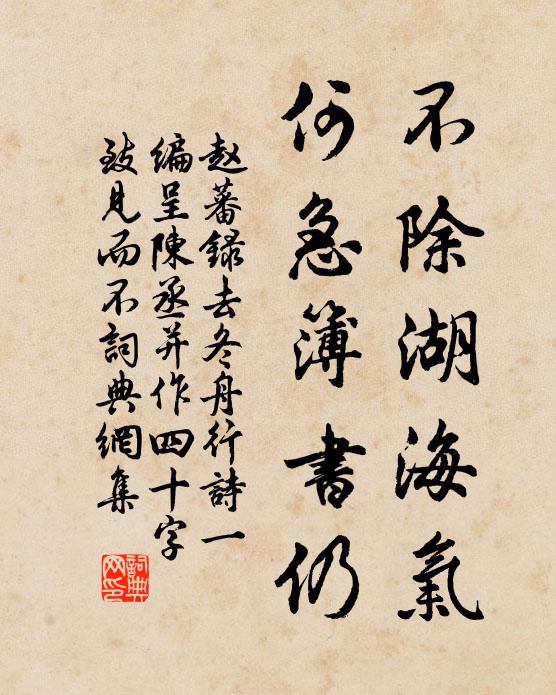 不除湖海氣
何急簿書仍
赵蕃録去冬舟行詩一
編呈陳丞并作四十字
致見而不詞典網集
詞典网印